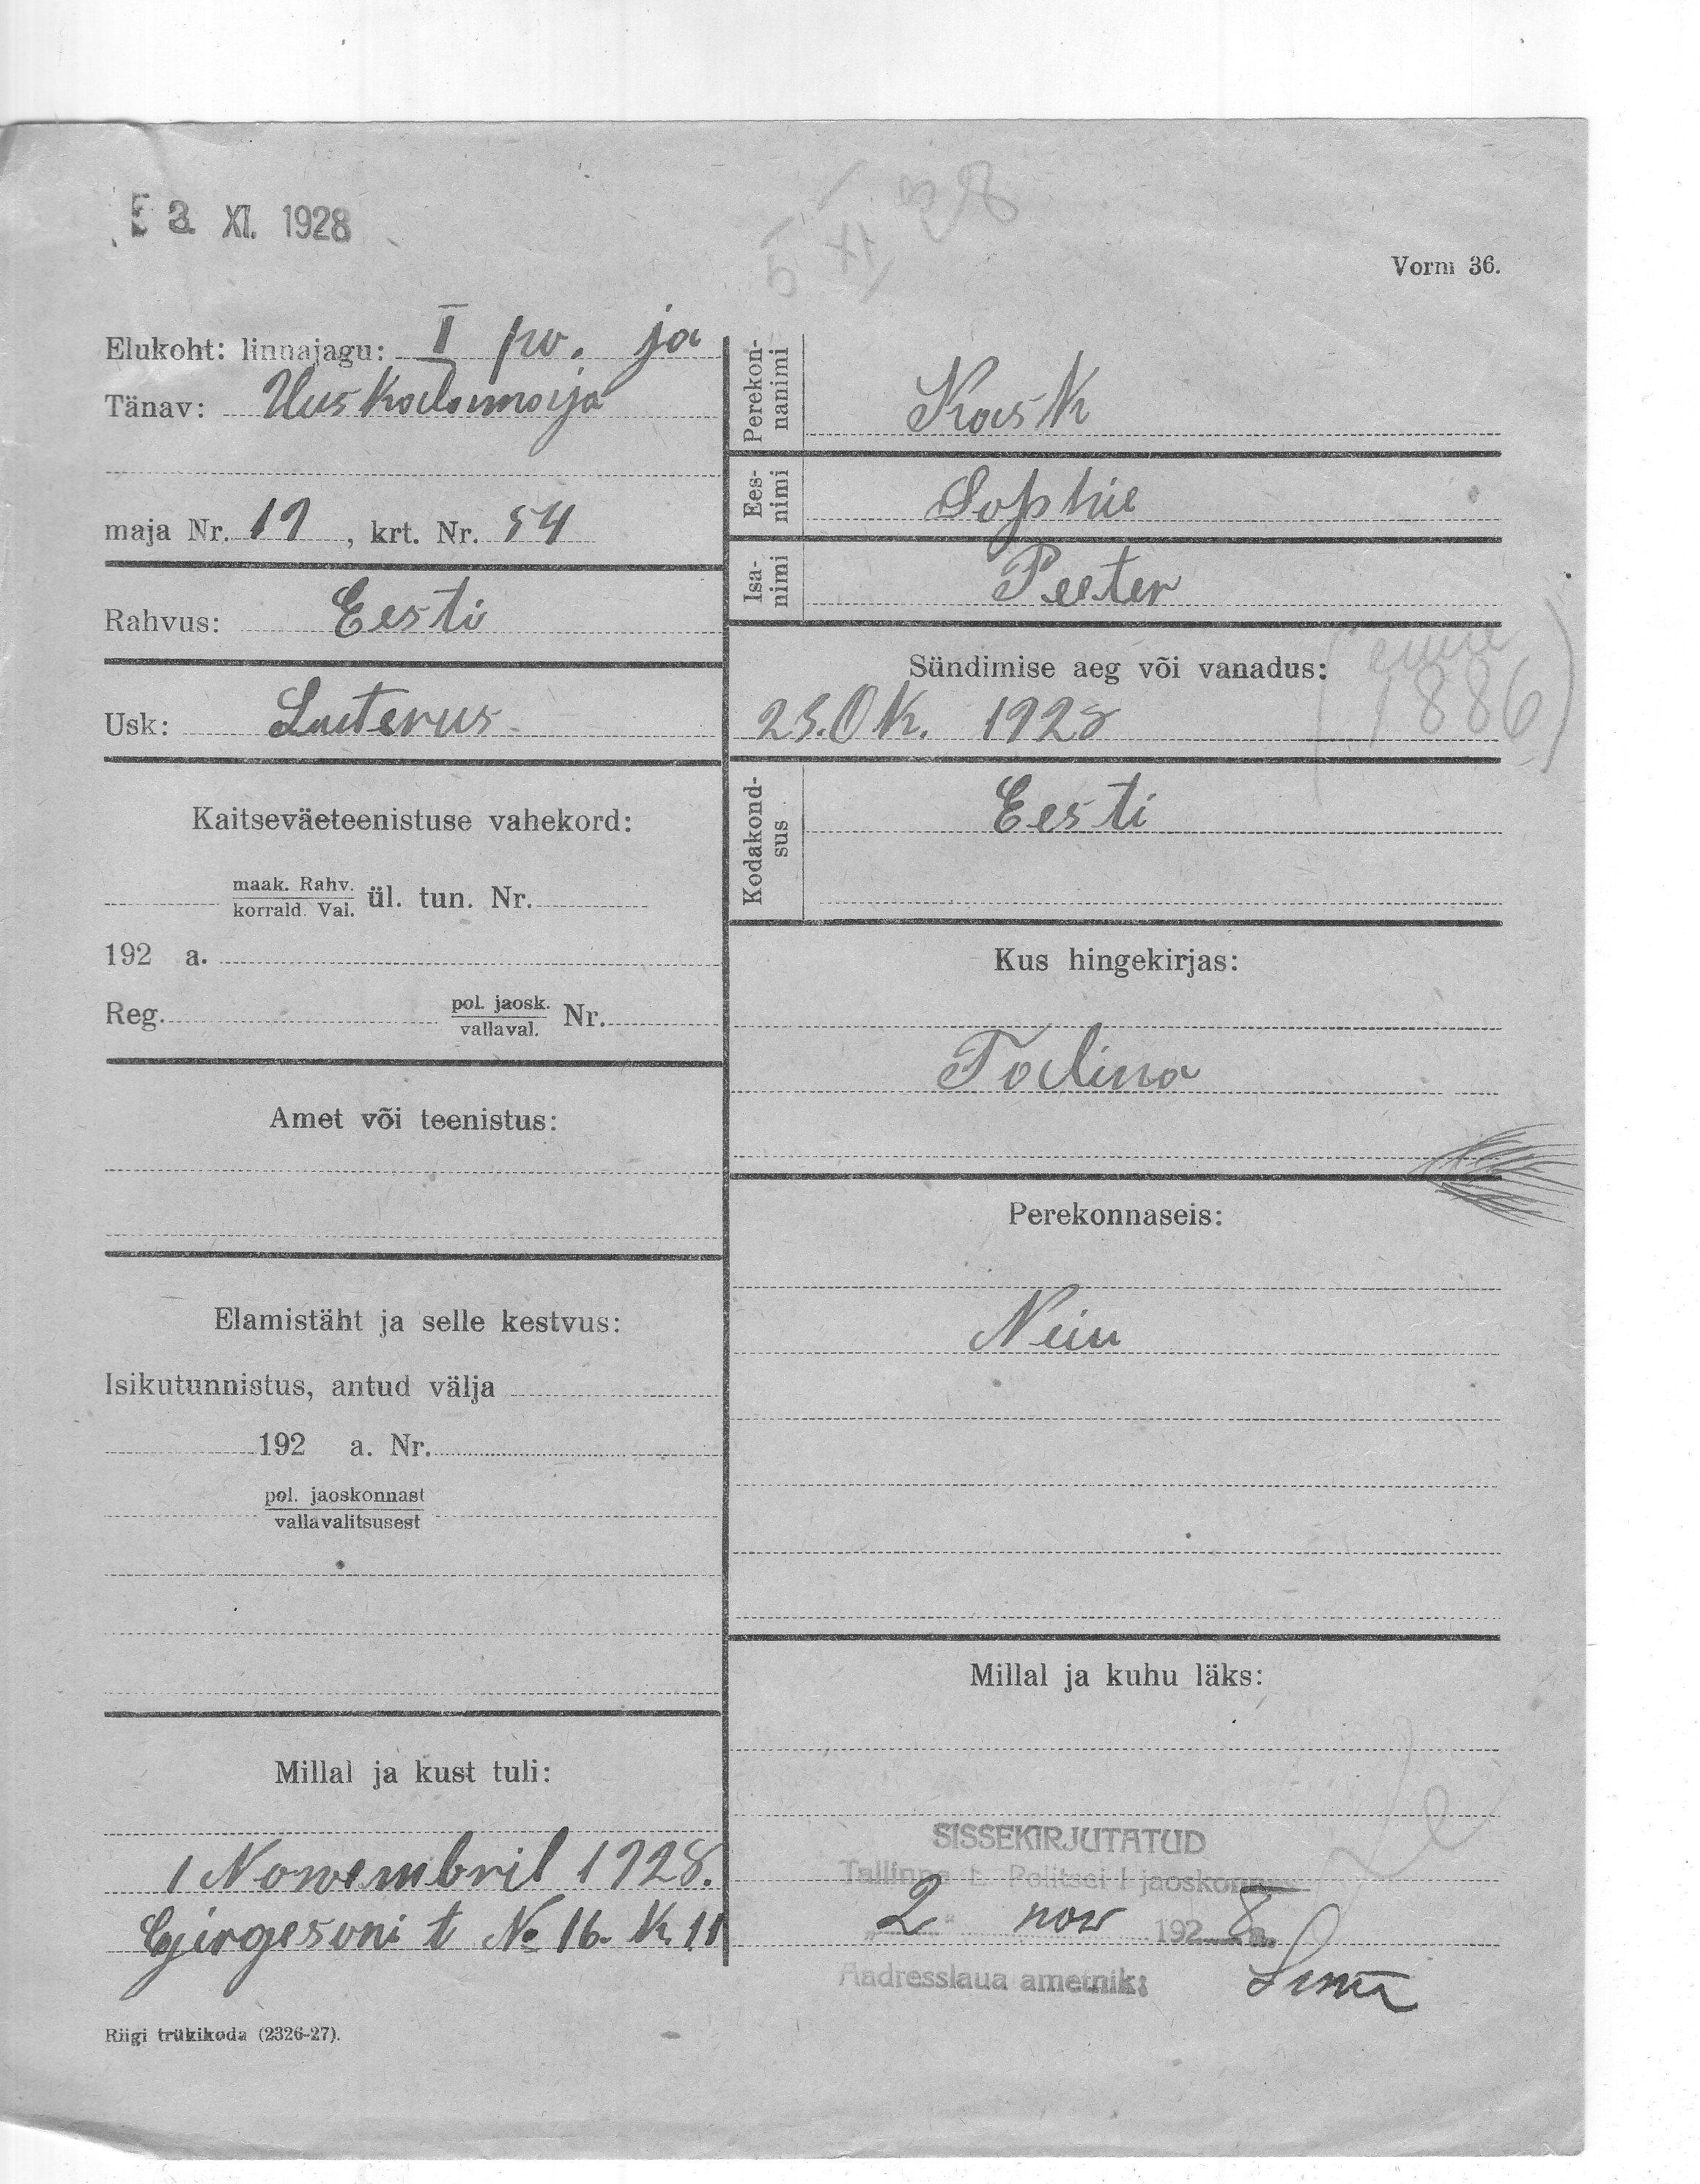 3. XI. 1928
5 XI 28
Vorm 36.
Elukoht: linnajagu: I po. ja
Tänav: Uus Kadumoija
maja Nr. 19, krt. Nr. 54
Rahvus: Eesti
Usk: Luterus.
Kaitseväeteenistuse vahekord:
maak. Rahv.
korrald. Val. ül. tun. Nr.
192 a.
Reg. pol. jaosk.
vallaval. Nr.
Amet või teenistus:
Elamistäht ja selle kestvus:
Isikutunnistus, antud välja
192 a. Nr.
pol. jaoskonnast
vallavalitsusest
Millal ja kust tuli:
1 Nowembril 1928.
Girgesoni t № 16. K. 11
Riigi trükikoda (2326-27).
Perekon-
nanimi
Kask
Ees-
nimi
Sophie
Isa-
nimi
Peeter
Sündimise aeg või vanadus:
25. OK. 1928
(enne
1886)
Kodakond-
sus
Eesti
Kus hingekirjas:
Talina
Perekonnaseis:
Neiu
Millal ja kuhu läks:
SISSEKIRJUTATUD
Tallinna L. Politsei I jaoskonnas
"2" nov 1928 a.
Aadresslaua ametnik: